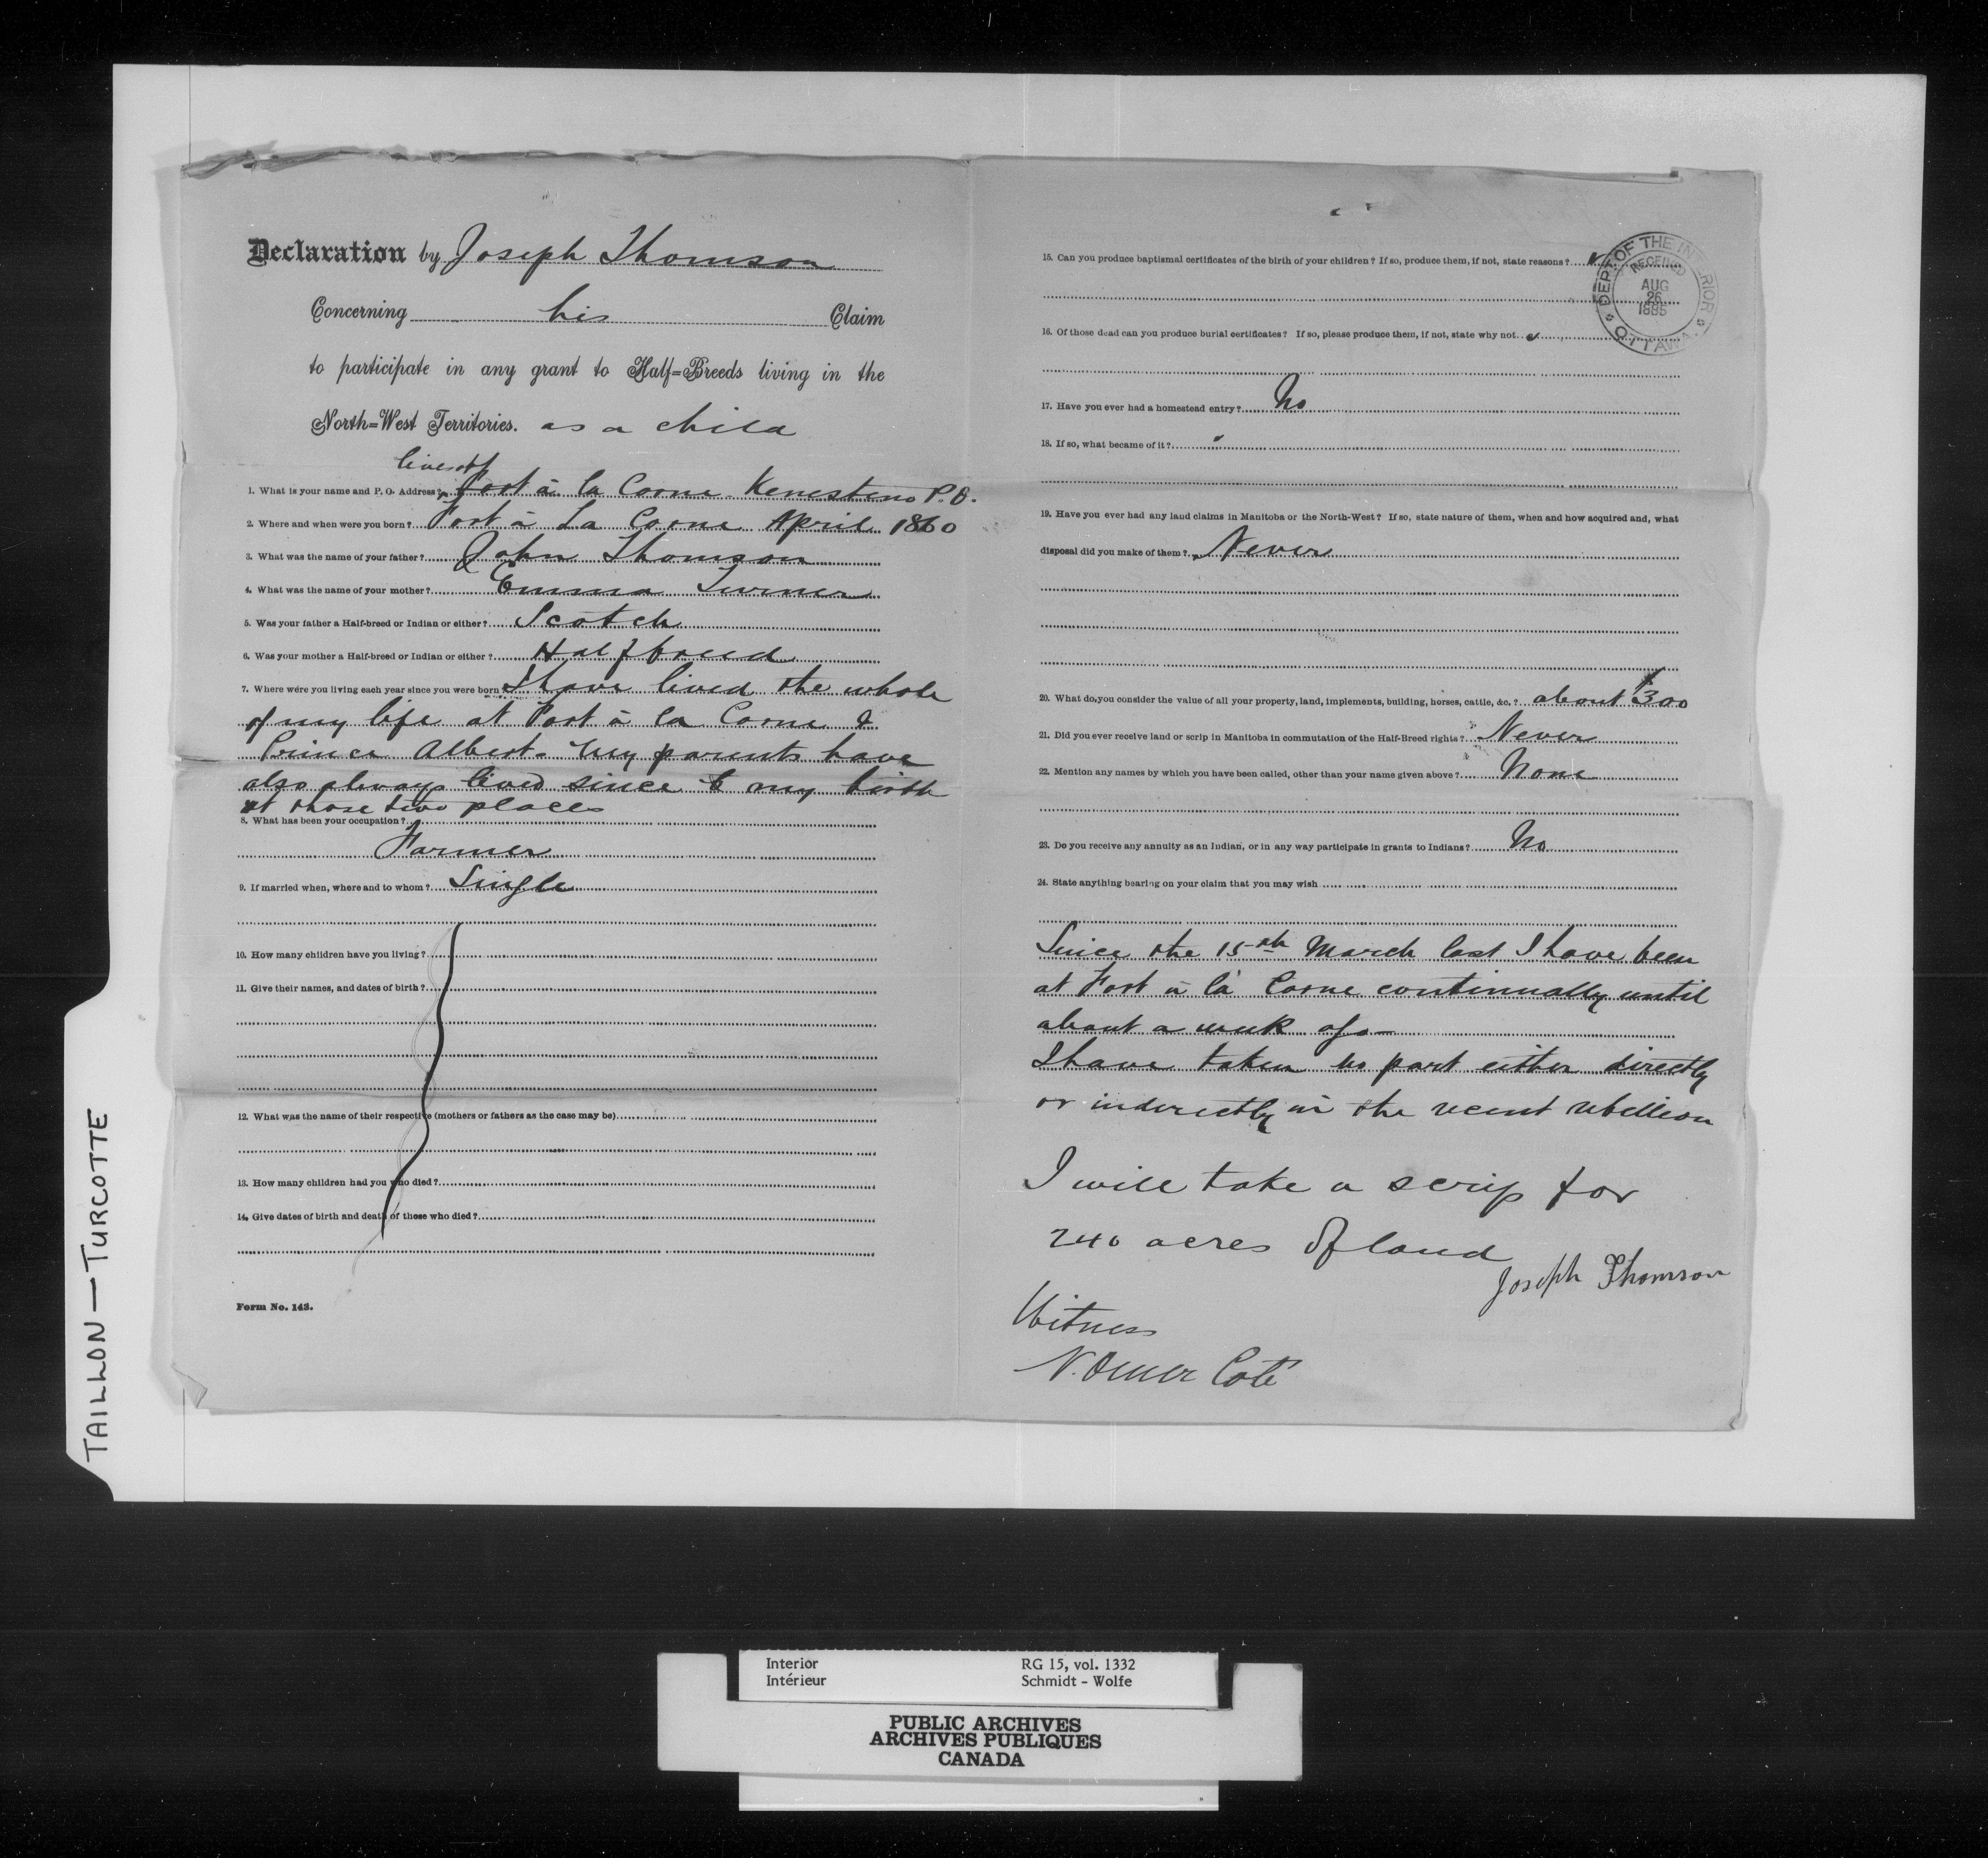 Declaration by Joseph Thomson
Concerning his Claim
to participate in any grant to Half=Breeds living in the
North=West Territories. as a child
lives at
1. What is your name and P. O. Address? Fort à la Corne Kenesteno P.O.
2. Where and when were you born? Fort à La Corne April 1860
3. What was the name of your father? John Thomson
4. What was the name of your mother? Emma Turner
5. Was your father a Half-breed or Indian or either? Scotch
6. Was your mother a Half-breed or Indian or either? Halfbreed
7. Where were you living each year since you were born? I have lived the whole
of my life at Fort à la Corne &
Prince Albert. My parents have
also always lived since my birth
at those two places
8. What has been your occupation?
Farmer
9. If married when, where and to whom? Single
10. How many children have you living?
11. Give their names, and dates of birth?
12. What was the name of their respective (mothers or fathers as the case may be)
13. How many children had you who died?
14. Give dates of birth and death of those who died?
Form No. 143.
15. Can you produce baptismal certificates of the birth of your children? If so, produce them, if not, state reasons?
DEPT OF THE INTERIOR
RECEIVED
AUG
26
1885
OTTAWA
16. Of those dead can you produce burial certificates? If so, please produce them, if not, state why not
17. Have you ever had a homestead entry? No
18. If so, what became of it?
19. Have you ever had any land claims in Manitoba or the North-West? If so, state nature of them, when and how acquired and, what
disposal did you make of them? Never
20. What do you consider the value of all your property, land, implements, building, horses, cattle, &c.? about $300
21. Did you ever receive land or scrip in Manitoba in commutation of the Half-Breed rights? Never
22. Mention any names by which you have been called, other than your name given above? None
23. Do you receive any annuity as an Indian, or in any way participate in grants to Indians? No
24. State anything bearing on your claim that you may wish
Since the 15th March last I have been
at Fort à la Corne continually until
about a week ago—
I have taken no part either directly
or indirectly in the recent rebellion
I will take a scrip for
240 acres of land
Joseph Thomson
Witness
N. Omer Coté
TAILLON — TURCOTTE
Interior RG 15, vol. 1332
Intérieur Schmidt - Wolfe
PUBLIC ARCHIVES
ARCHIVES PUBLIQUES
CANADA